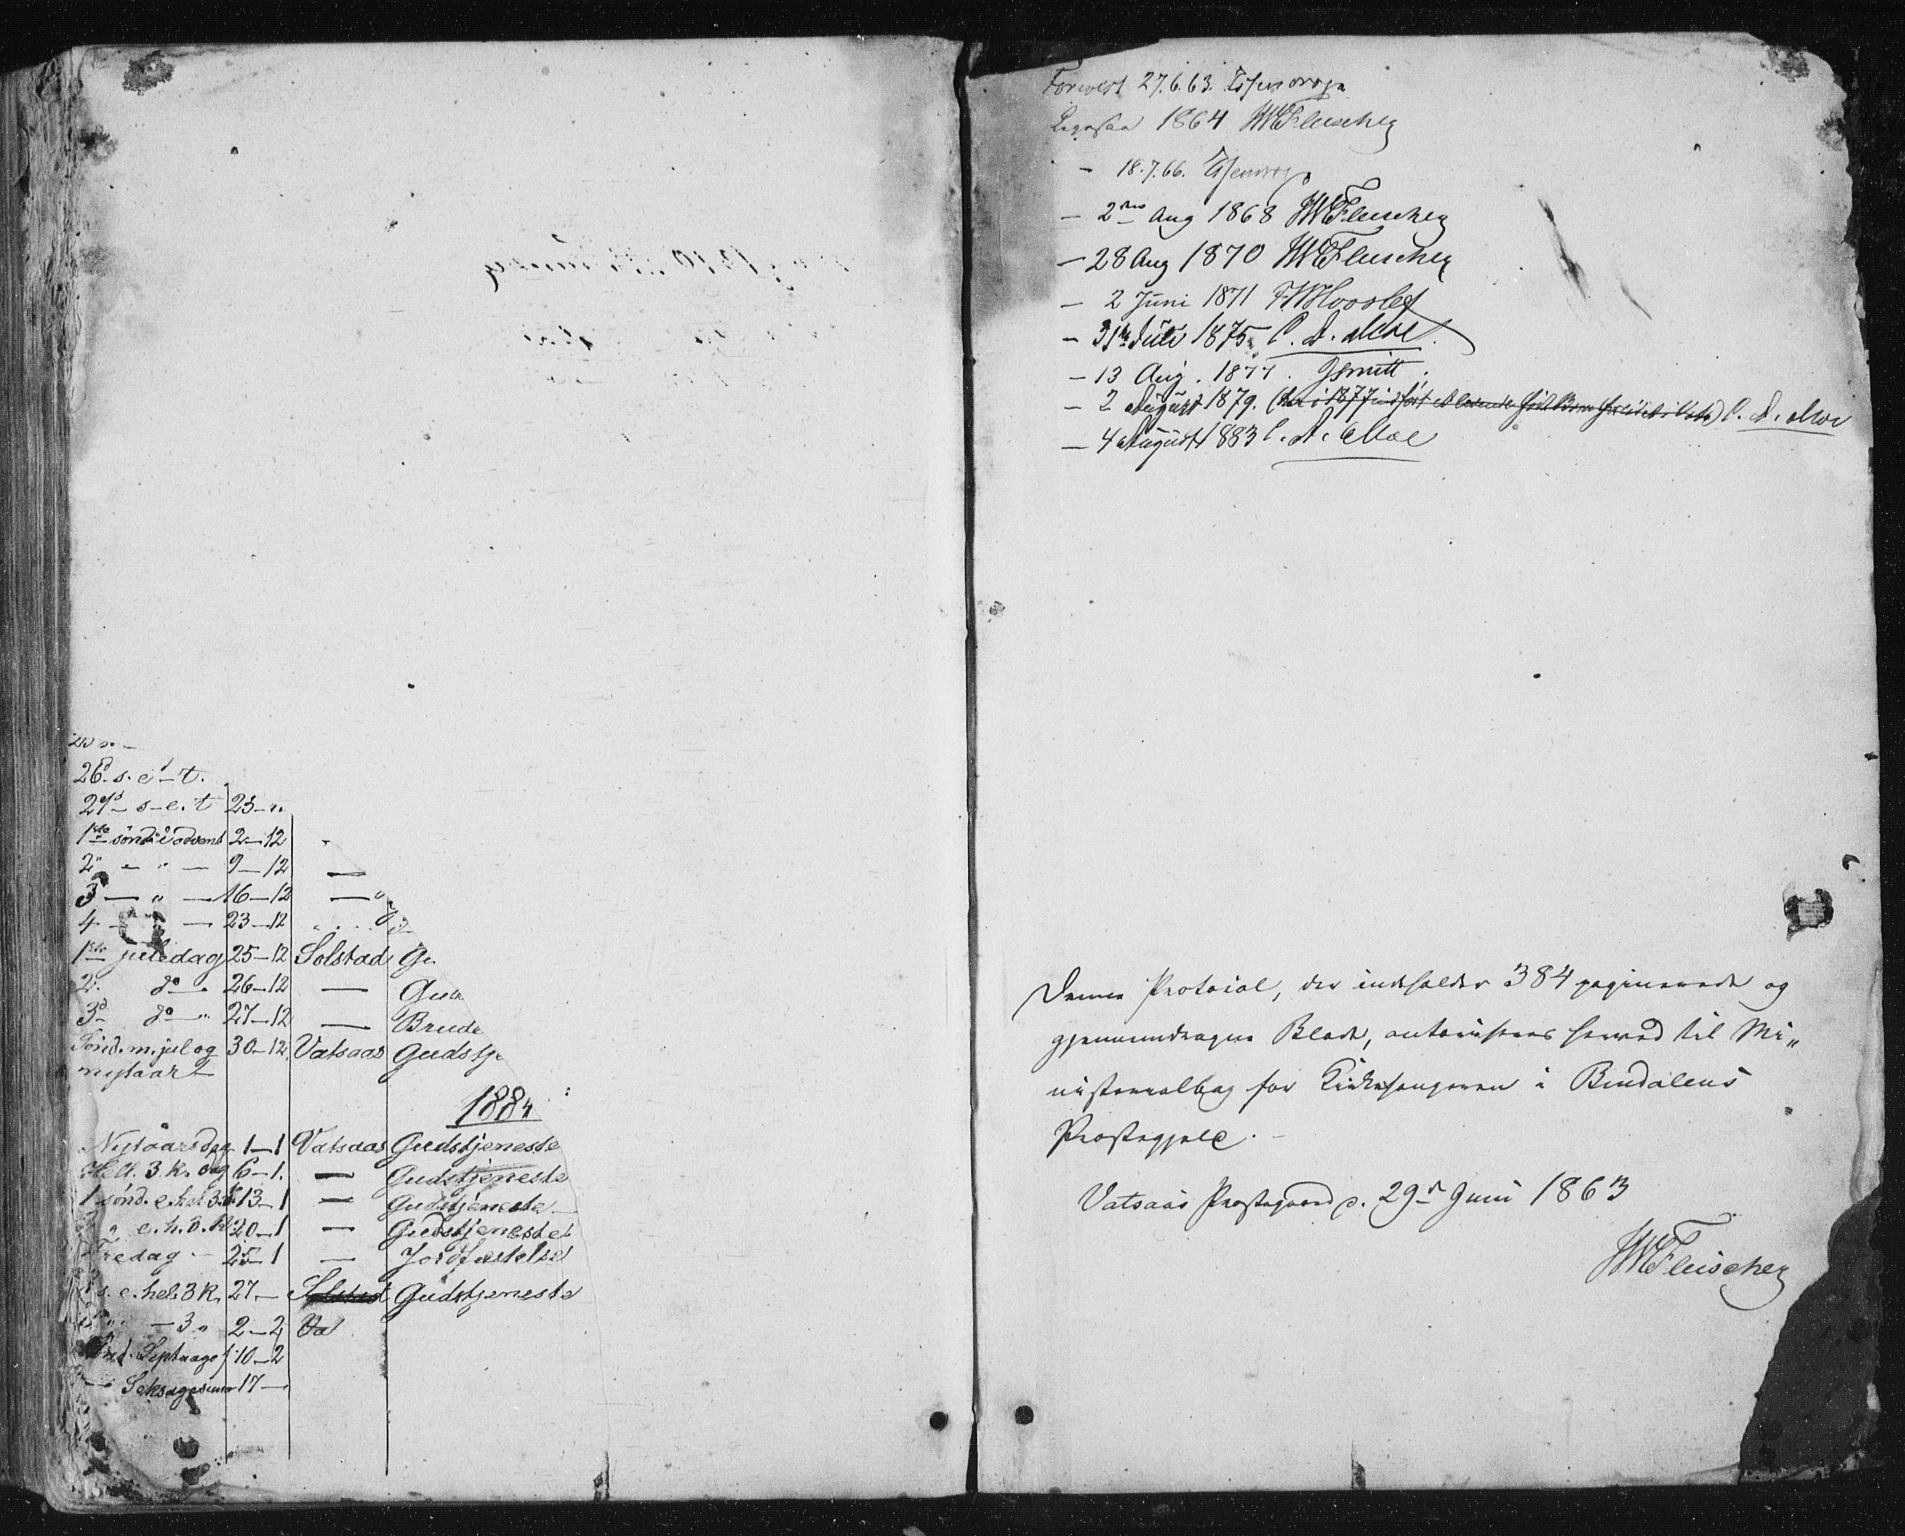 26d s. e. t.
27d s. e. t 25
1ste sønd. i advent 2–12
2 " — 9–12 —
3 — " — 16–12 —
4 — 23–12
1ste juledag 25–12 Solstad
2. do 26–12 —
3d do 27–12 —
Sønd. m. jul og 30–12 Vatsaas Gudstje
nytaar
1884
Nytaarsdag 1–1 Vatsaas Gudstjeneste
Hell. 3 K. dag 6–1. — Gudstjeneste
1 sønd. e. hel. 3 K 13–1 — Gudstjeneste
" e. h. 3. K 20–1 — Gudstjeneste
Fredag 25–1 — Jordfæstelse
s. e. hel. 3 K. 27– Solstad Gudstjeneste
— 3 " 2–2 Va
Septuages 10–2
— Seksagesima 17 —
27.6.63.
1864 Fleischer
— 18.7.66.
— 2den Aug 1868 Fleischer
— 28 Aug 1870 Fleischer
— 2 Juni 1871
— 31te Juli 1875. C. A. Moe.
— 13 Aug. 1877. Smitt.
— 2 August 1879. C. A. Moe
— 4 August 1883 C. A. Moe
Denne Protocol, der indeholder 384 paginerede og
gjennemdragne Blade, autoriseres herved til Mi„
nisterialbog for Kirkesangeren i Bindalens
Præstegjeld.
Vatsaas Præstegaard d. 29de Juni 1863
Fleischer